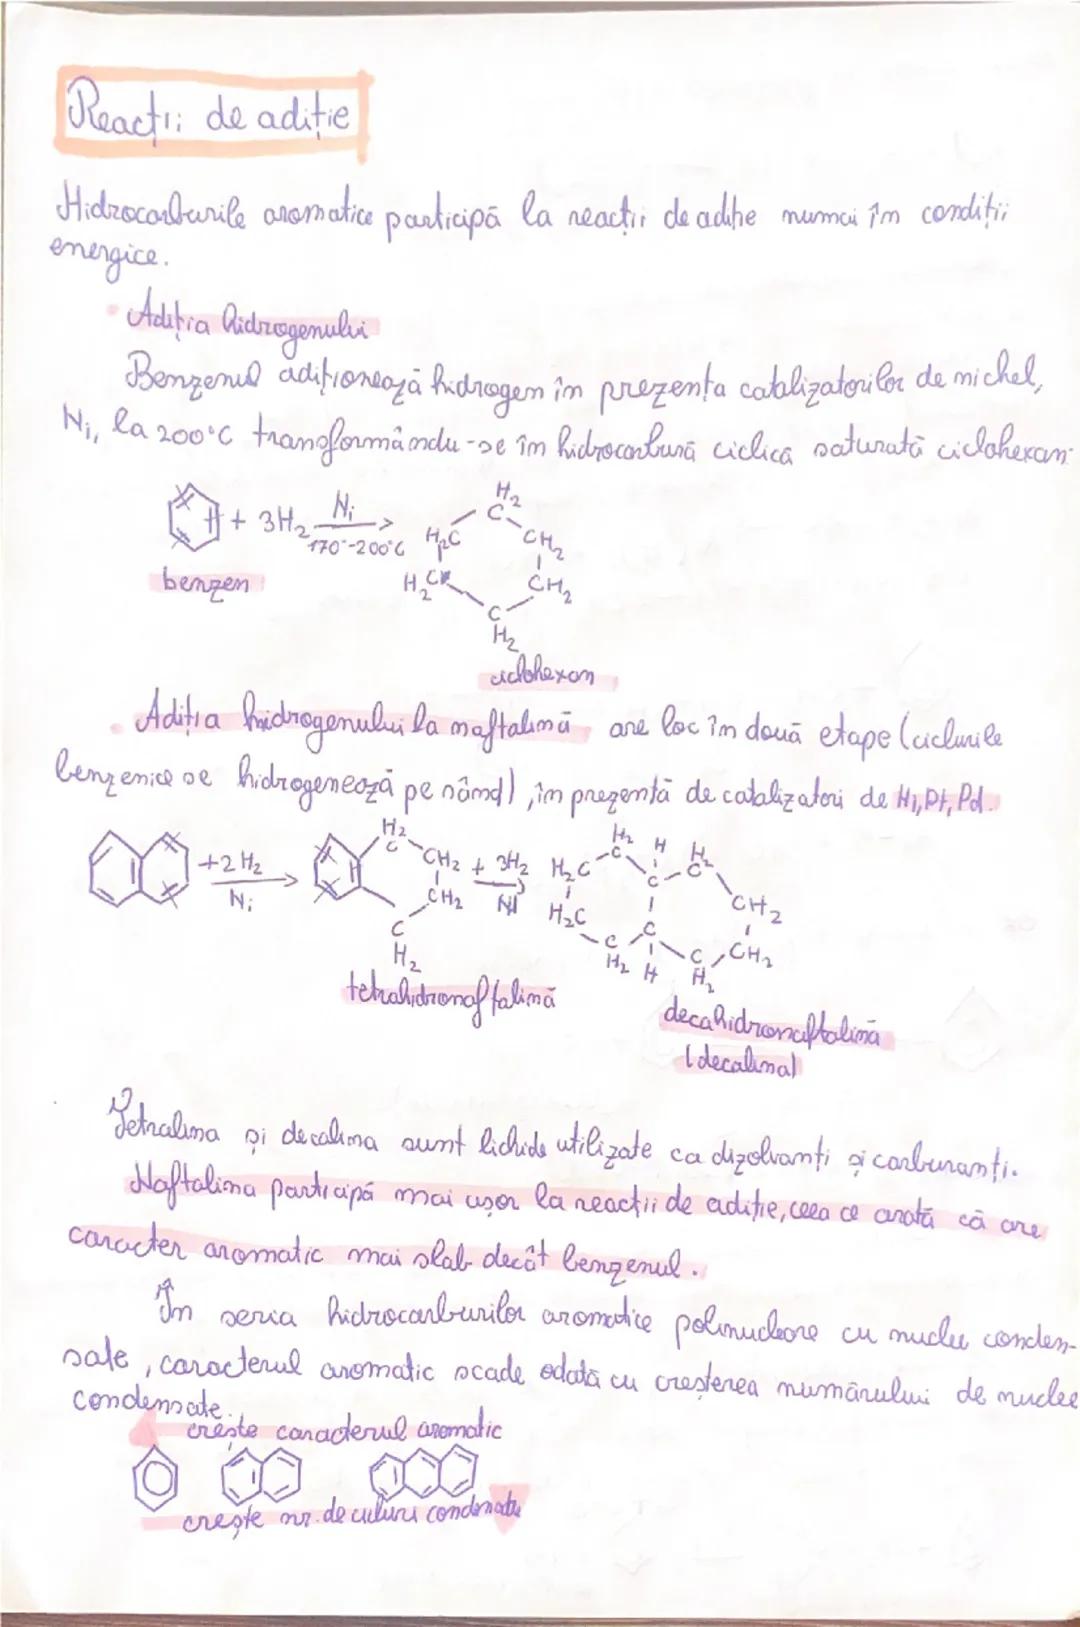 Reacții de adiție
Hidrocarburile aromatice participă la reacții de adiție numai în condiții
energice.
Adiția hidrogenului
Benzenul adiționează hidrogen în prezența catalizatorilor de nichel,
Ni, la 200°C transformându-se în hidrocarbură ciclică saturată ciclohexan
+ 3H2 Ni 170°-200°C
H2 C
H2C CH2
H2C CH2
C H2
benzen
ciclohexan
Adiția hidrogenului la naftalină are loc în două etape (ciclurile
benzenice se hidrogenează pe rând), în prezență de catalizatori de Ni, Pt, Pd.
+2H2 Ni
H2 C CH2 CH2 C H2
+ 3H2 Ni
H2 C H C H2 H2C C CH2
H2C C CH2 C H2 H C H2
tetrahidronaftalină
decahidronaftalină
(decalina)
Tetralina și decalina sunt lichide utilizate ca dizolvanți și carburanți.
Naftalina participă mai ușor la reacții de adiție, ceea ce arată că are
caracter aromatic mai slab decât benzenul.
În seria hidrocarburilor aromatice polinucleare cu nuclee conden-
sate, caracterul aromatic scade odată cu creșterea numărului de nuclee
condensate.
crește caracterul aromatic
crește nr. de cicluri condensate